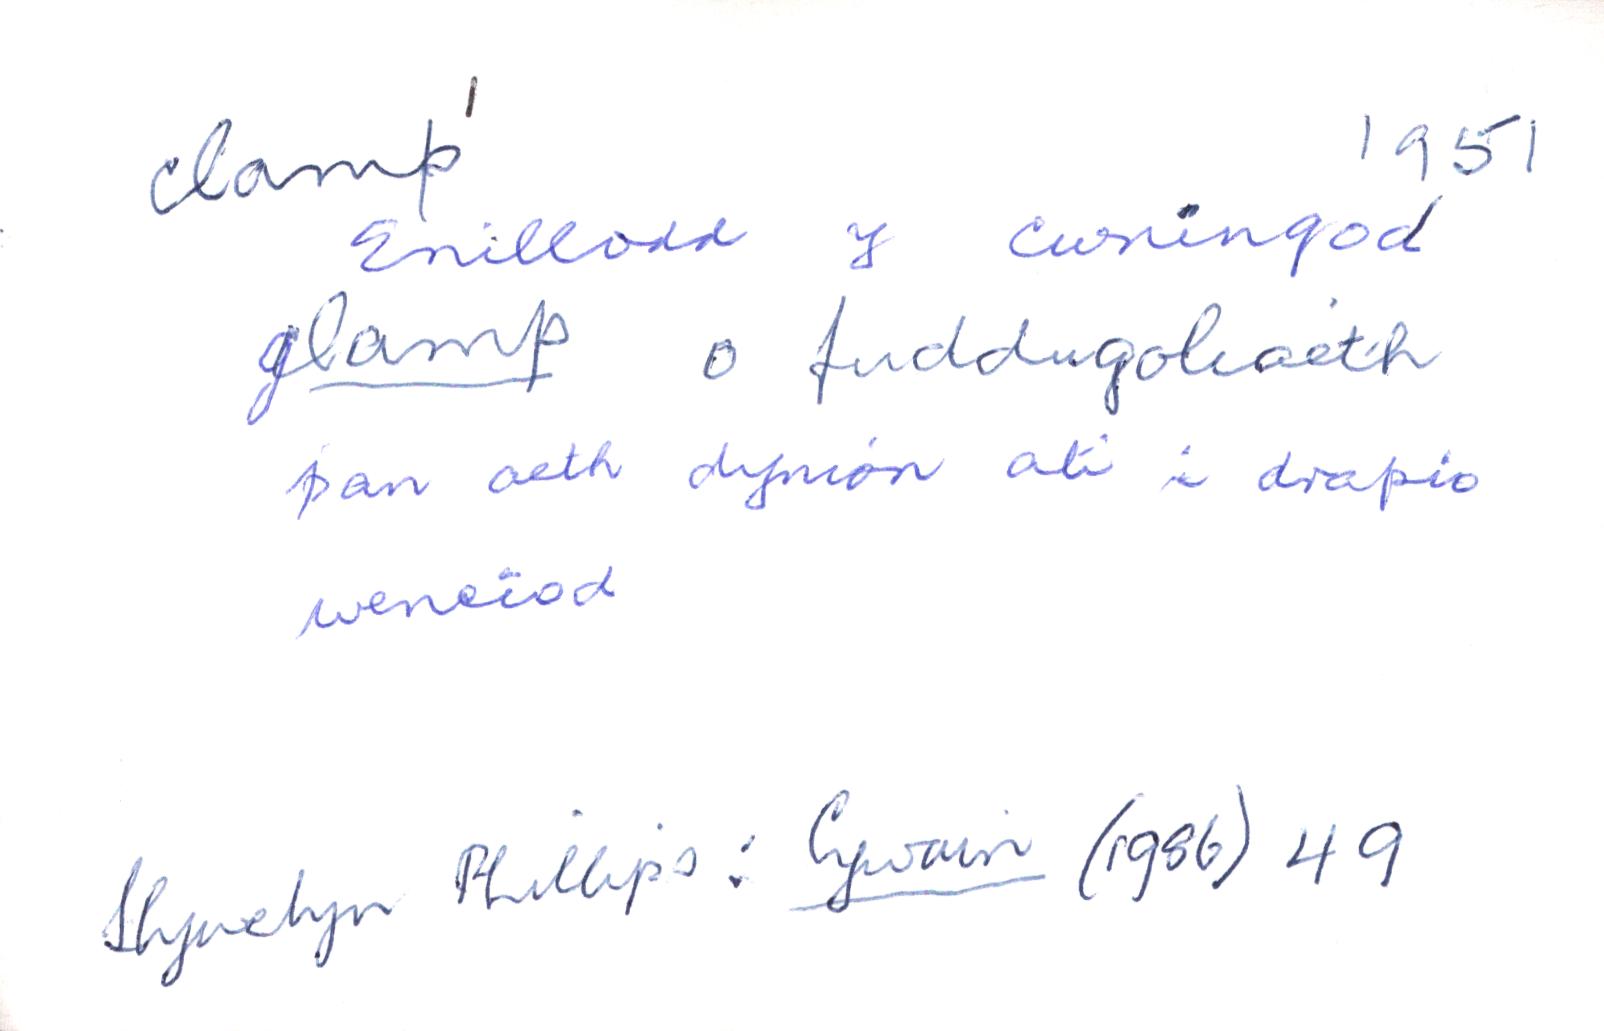 clamp¹ 1951
Enillodd y cwningod
glamp o fuddugoliaeth
pan aeth dynion ati i drapio
wenciod
Llywelyn Phillips : Cywain (1986) 49